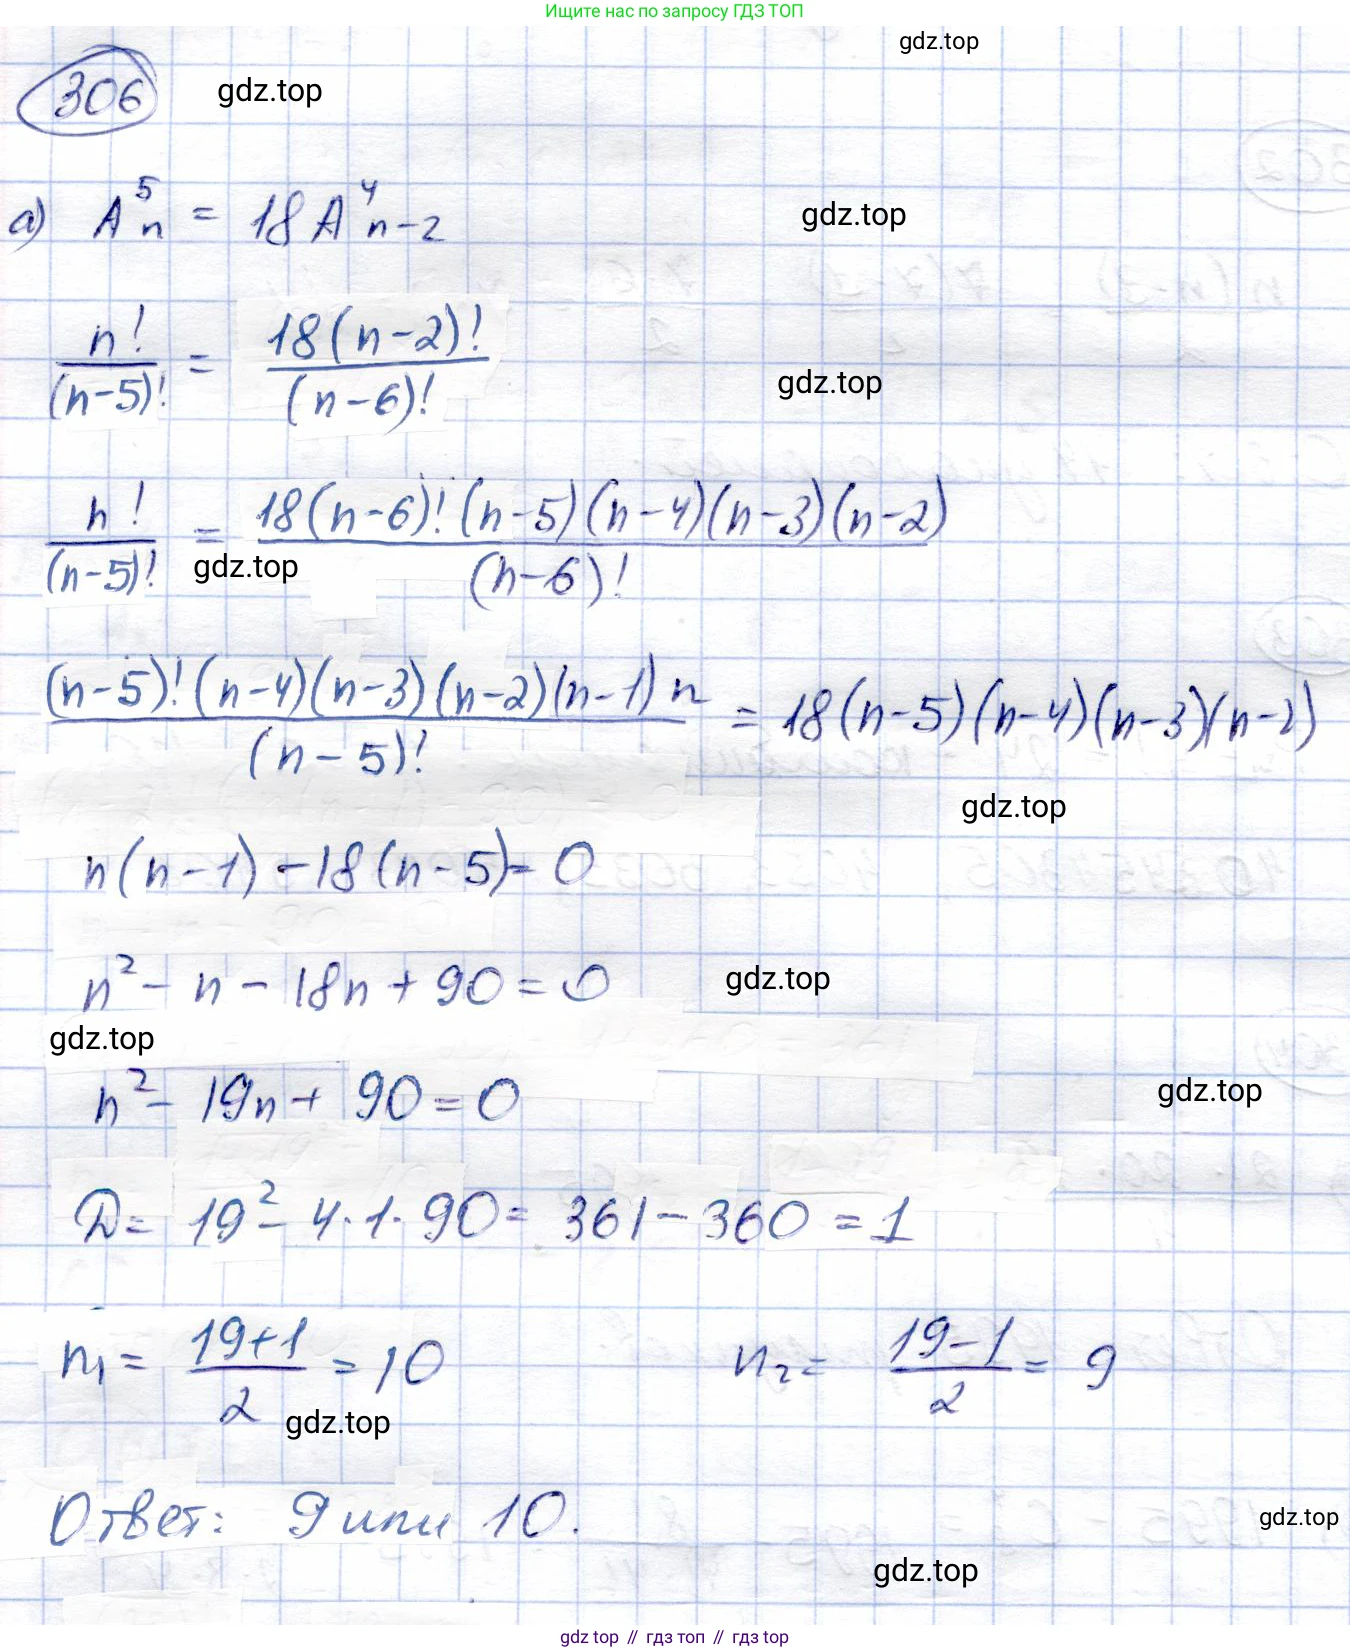 Ищите нас по запросу ГДЗ ТОП
gdz.top
306
gdz.top
а) A⁵ₙ = 18A⁴ₙ₋₂
gdz.top
n!/(n-5)! = 18(n-2)!/(n-6)!
gdz.top
n!/(n-5)! = 18(n-6)!(n-5)(n-4)(n-3)(n-2)/(n-6)!
gdz.top
(n-5)!(n-4)(n-3)(n-2)(n-1)n/(n-5)! = 18(n-5)(n-4)(n-3)(n-2)
gdz.top
n(n-1)-18(n-5)=0
n²-n-18n+90=0
gdz.top
gdz.top
n²-19n+90=0
gdz.top
D= 19²-4·1·90= 361-360=1
n₁= (19+1)/2 =10 n₂= (19-1)/2 = 9
gdz.top
Ответ: 9 или 10.
gdz.top
gdz.top
gdz top // гдз топ // гдз top